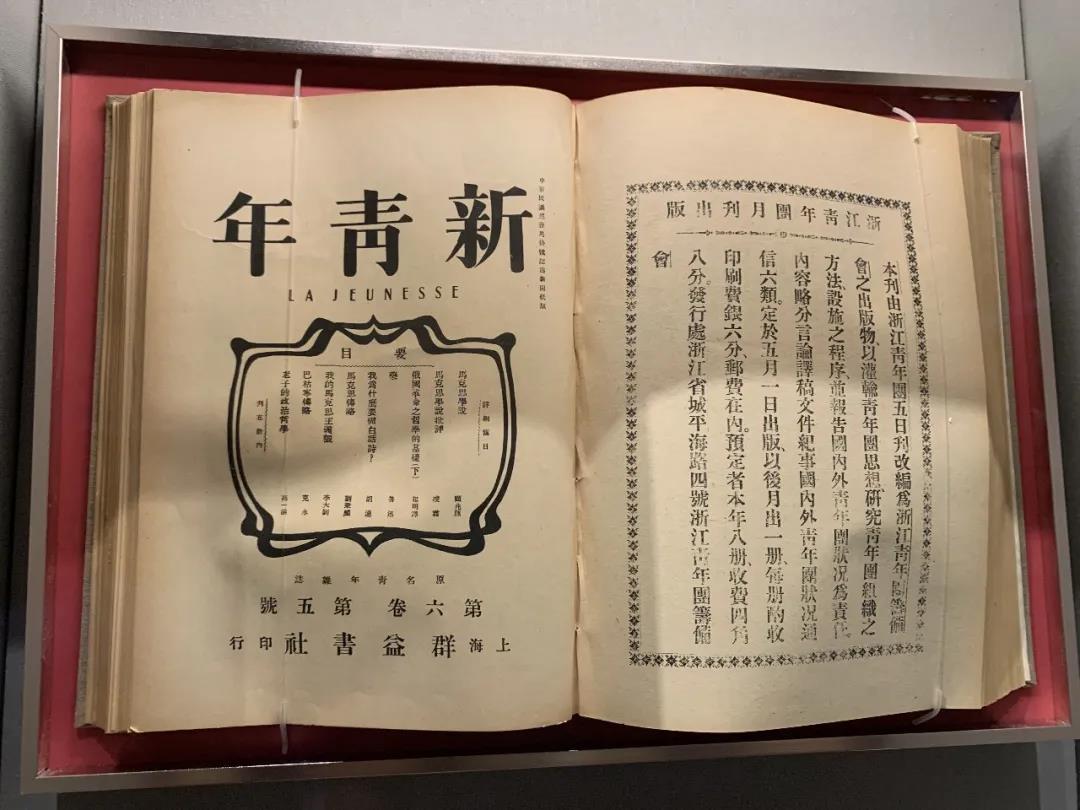 浙江青年團月刊出版
本刊由浙江青年團五日刊改編爲浙江青年團籌備
會之出版物、以灌輸青年團思想、研究青年團組織之
方法、設施之程序並報告國內外青年團狀况爲責任、
內容略分言論譯稿文件紀事國內外青年團狀况通
信六類。定於五月一日出版、以後月出一册、每册酌收
印刷費銀六分、郵費在內。預定者本年八册、收費四角
八分。發行處浙江省城平海路四號浙江青年團籌備
會
新青年
LA JEUNESSE
要目
馬克思學說 顧兆熊
馬克思學說批評 凌霜
俄國革命之哲學的基礎(下) 起明譯
藥 魯迅
我爲什麽要做白話詩? 胡適
馬克思傳略 劉秉麟
我的馬克思主義觀 李大釗
巴枯寧傳略 克水
老子的政治哲學 高一涵
原名青年雜誌
第六卷第五號
上海群益書社印行